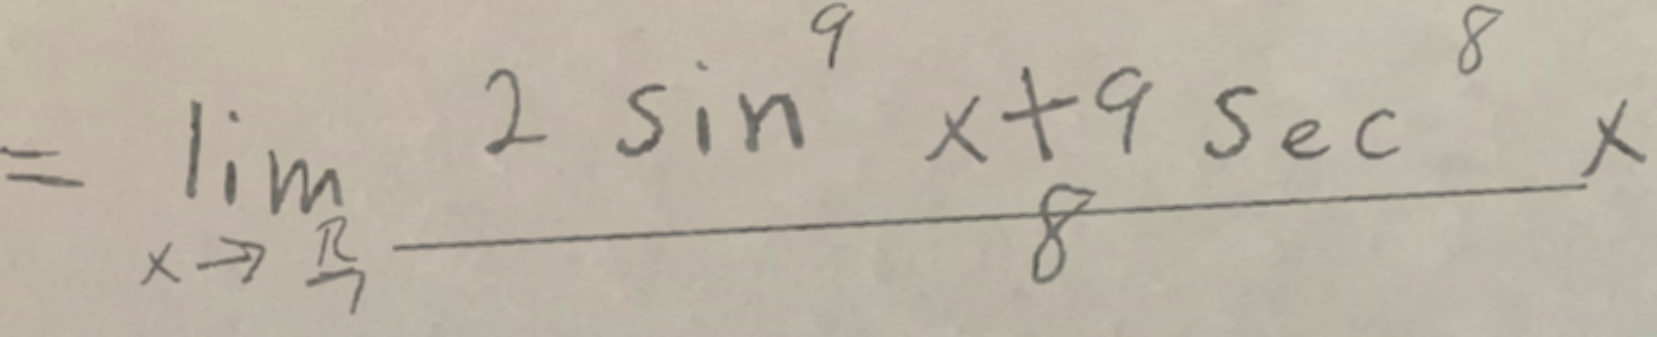 = \lim_{x \to \frac{\pi}{7}} \frac{2 \sin^9 x + 9 \sec^8 x}{8}